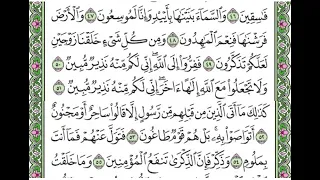 فَٰسِقِينَ ﴿٤٦﴾ وَٱلسَّمَآءَ بَنَيْنَٰهَا بِأَيْي۟دٍ وَإِنَّا لَمُوسِعُونَ ﴿٤٧﴾ وَٱلْأَرْضَ
فَرَشْنَٰهَا فَنِعْمَ ٱلْمَٰهِدُونَ ﴿٤٨﴾ وَمِن كُلِّ شَىْءٍ خَلَقْنَا زَوْجَيْنِ
لَعَلَّكُمْ تَذَكَّرُونَ ﴿٤٩﴾ فَفِرُّوٓا۟ إِلَى ٱللَّهِ إِنِّى لَكُم مِّنْهُ نَذِيرٌ مُّبِينٌ ﴿٥٠﴾
وَلَا تَجْعَلُوا۟ مَعَ ٱللَّهِ إِلَٰهًا ءَاخَرَ إِنِّى لَكُم مِّنْهُ نَذِيرٌ مُّبِينٌ ﴿٥١﴾
كَذَٰلِكَ مَآ أَتَى ٱلَّذِينَ مِن قَبْلِهِم مِّن رَّسُولٍ إِلَّا قَالُوا۟ سَاحِرٌ أَوْ مَجْنُونٌ
﴿٥٢﴾ أَتَوَاصَوْا۟ بِهِۦ بَلْ هُمْ قَوْمٌ طَاغُونَ ﴿٥٣﴾ فَتَوَلَّ عَنْهُمْ فَمَآ أَنتَ
بِمَلُومٍ ﴿٥٤﴾ وَذَكِّرْ فَإِنَّ ٱلذِّكْرَىٰ تَنفَعُ ٱلْمُؤْمِنِينَ ﴿٥٥﴾ وَمَا خَلَقْتُ